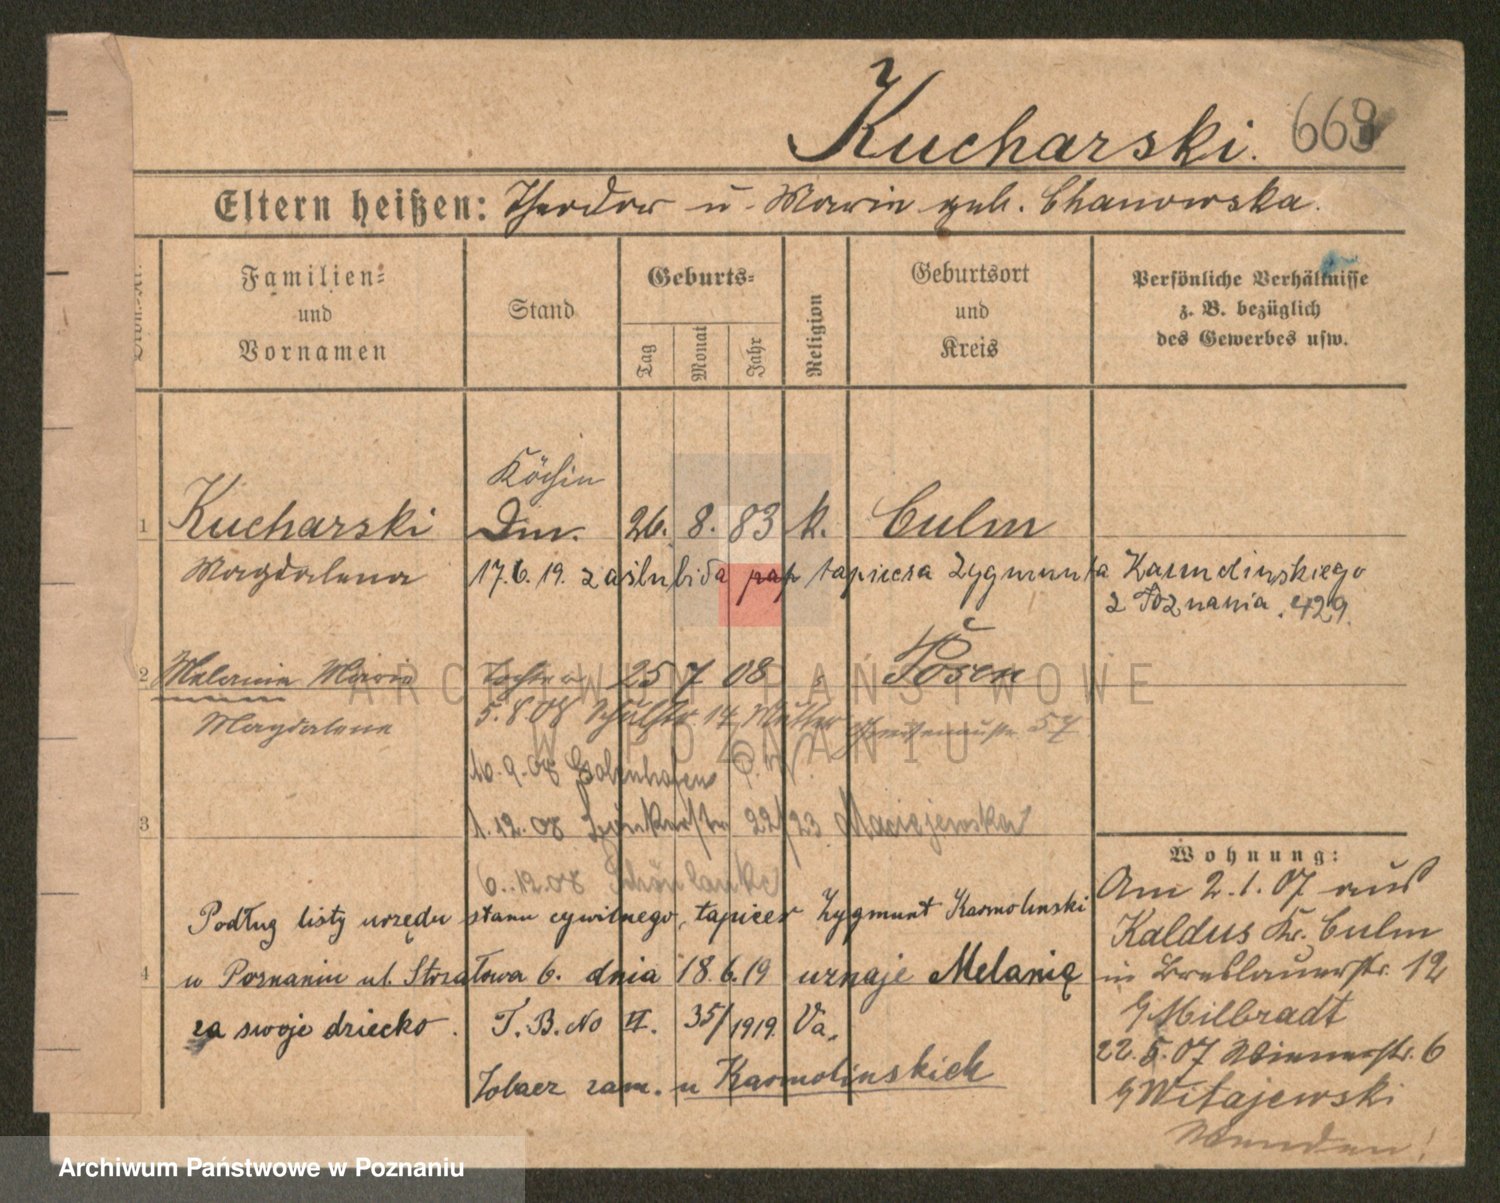 Kucharski. 669
Eltern heißen: Theodor u. Marie geb. Chanowska.
Familien- und Vornamen
Stand
Geburts-
Tag
Monat
Jahr
Religion
Geburtsort und Kreis
Persönliche Verhältnisse z. B. bezüglich des Gewerbes usw.
Köchin
1 Kucharski Dm. 26. 8. 83 k. Culm
Magdalena 17.6.19. zaślubiła tapicera Zygmunta Karmolinskiego
z Poznania. 429.
2 Melanie Maria Tochter 25 7 08 Posen
Magdalene 5.8.08 Schulstr 14 Mutter Gneisenaustr. 57
10.9.08
3 1.12.08 22/23 Maciejewska
6.12.08 Schönlanke
Wohnung:
Am 2.1.07 aus
Kaldus Kr. Culm
in Breslauerstr. 12
b/ Milbradt
22.5.07 Wienerstr. 6
b/ Witajewski
Wenden!
Podług listy urzędu stanu cywilnego, tapicer Zygmunt Karmolinski
4 w Poznaniu ul. Strzałowa 6. dnia 18.6.19 uznaje Melanię
za swoje dziecko. T.B.No II. 35/1919. Va.
Zobacz zam. u Karmolinskich
ARCHIWUM PAŃSTWOWE
W POZNANIU
Archiwum Państwowe w Poznaniu